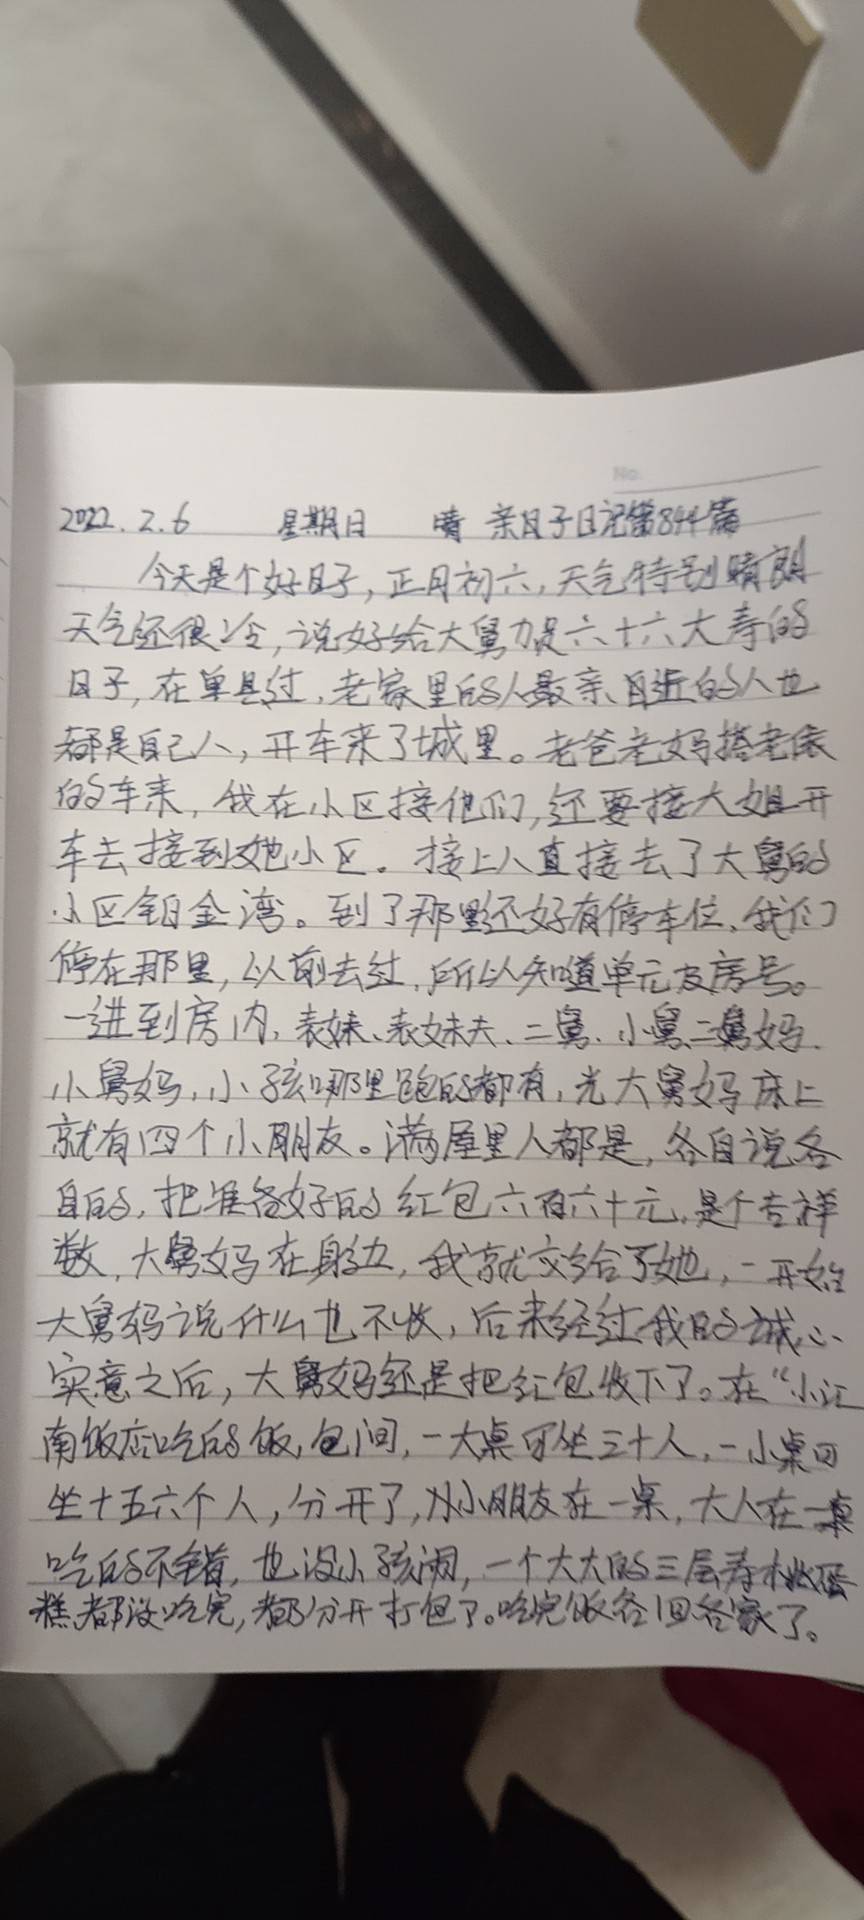 No.
2022.2.6 星期日 晴 亲子日记第844篇
今天是个好日子，正月初六，天气特别晴朗
天气还很冷，说好给大舅办是六十六大寿的
日子，在单县过，老家里的人最亲、自近的人也
都是自己人，开车来了城里。老爸老妈搭老
的车来，我在小区接他们，还要接大姐开
车去接到她小区。接上人直接去了大舅的
小区铂金湾。到了那里还好有停车位，我们
停在那里，以前去过，所以知道单元及房号。
一进到房内，表妹、表妹夫、二舅、小舅、二舅妈、
小舅妈，小孩哪里跑的都有，光大舅妈床上
就有四个小朋友。满屋里人都是，各自说各
自的，把准备好的红包六百六十元，是个吉祥
数，大舅妈在身边，我就交给了她，一开始
大舅妈说什么也不收，后来经过我的诚心
实意之后，大舅妈还是把红包收下了。在“小江
南饭店吃的饭，包间，一大桌可坐三十人，一小桌可
坐十五六个人，分开了，小朋友在一桌，大人在一桌
吃的不错，也没小孩闹，一个大大的三层寿桃蛋
糕都没吃完，都分开打包了。吃完饭各回各家了。